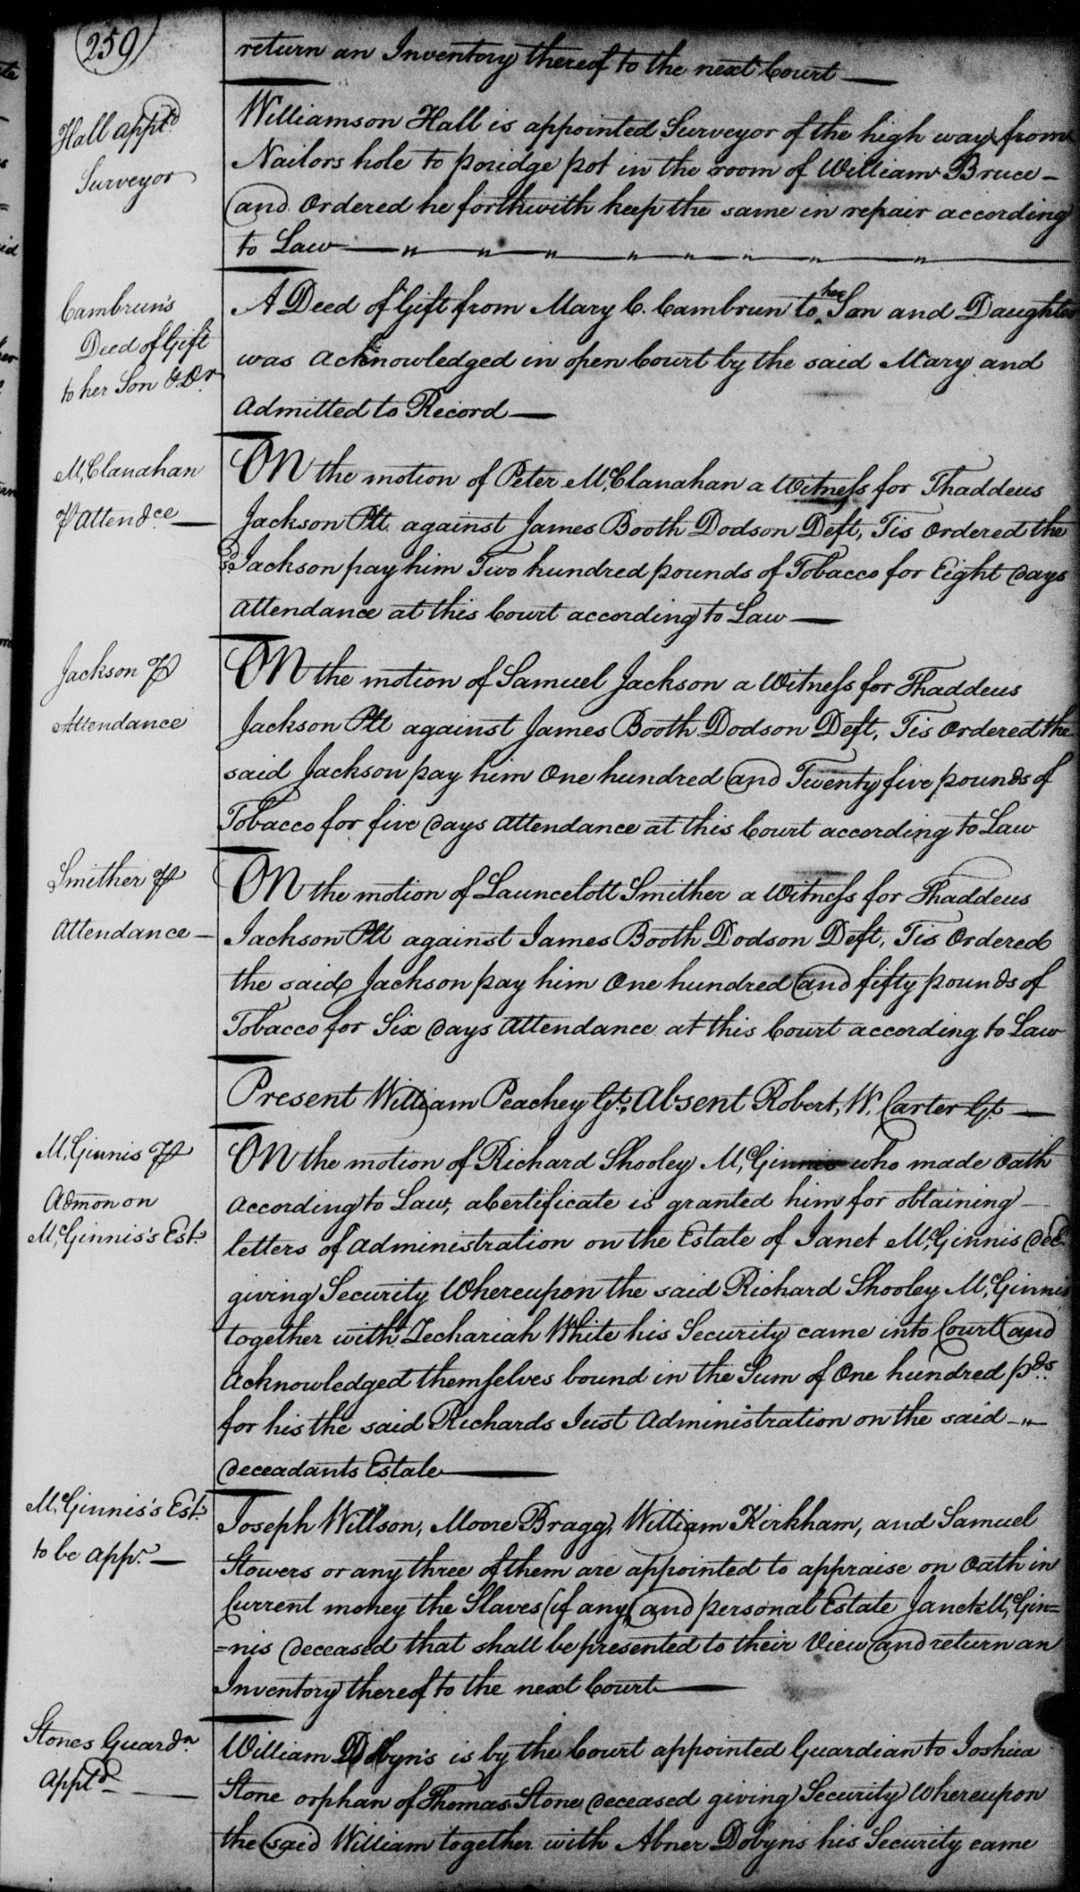 259
return an Inventory thereof to the next Court
Hall appt.d
Surveyor
Williamson Hall is appointed Surveyor of the high way from
Nailors hole to poridge pot in the room of William Bruce
and Ordered he forthwith keep the same in repair according
to Law
Cambrun's
Deed of Gift
to her Son & Dr.
A Deed of Gift from Mary C. Cambrun to her Son and Daughter
was acknowledged in open Court by the said Mary and
Admitted to Record
McClanahan
pr Attendce
ON the motion of Peter McClanahan a Witness for Thaddeus
Jackson Plt against James Booth Dodson Deft, Tis Ordered the
sd. Jackson pay him Two hundred pounds of Tobacco for Eight days
Attendance at this Court according to Law
Jackson pr
Attendance
ON the motion of Samuel Jackson a Witness for Thaddeus
Jackson Plt against James Booth Dodson Deft, Tis Ordered the
said Jackson pay him One hundred and Twenty five pounds of
Tobacco for five days Attendance at this Court according to Law
Smither pr
Attendance
ON the motion of Launcelott Smither a Witness for Thaddeus
Jackson Plt against James Booth Dodson Deft, Tis Ordered
the said Jackson pay him One hundred and fifty pounds of
Tobacco for Six days Attendance at this Court according to Law
Present William Peachey Gt., Absent Robert, W. Carter Gt.
McGinnis pr
Admon on
McGinnis's Est.
ON the motion of Richard Shooley McGinnis who made Oath
According to Law, a Certificate is granted him for obtaining
letters of Administration on the Estate of Janet McGinnis dec.
giving Security Whereupon the said Richard Shooley McGinnis
together with Zechariah White his Security came into Court and
Acknowledged themselves bound in the Sum of One hundred pds.
for his the said Richards Just Administration on the said
deceadants Estate
McGinnis's Est.
to be appr.
Joseph Willson, Moore Bragg, William Kirkham, and Samuel
Stowers or any three of them are appointed to appraise on Oath in
Current money the Slaves (if any) and personal Estate Janet McGin=
=nis deceased that shall be presented to their View and return an
Inventory thereof to the next Court
Stones Guardn
Apptd
William Dobyn's is by the Court appointed Guardian to Joshua
Stone orphan of Thomas Stone deceased giving Security Whereupon
the said William together with Abner Dobyns his Security came